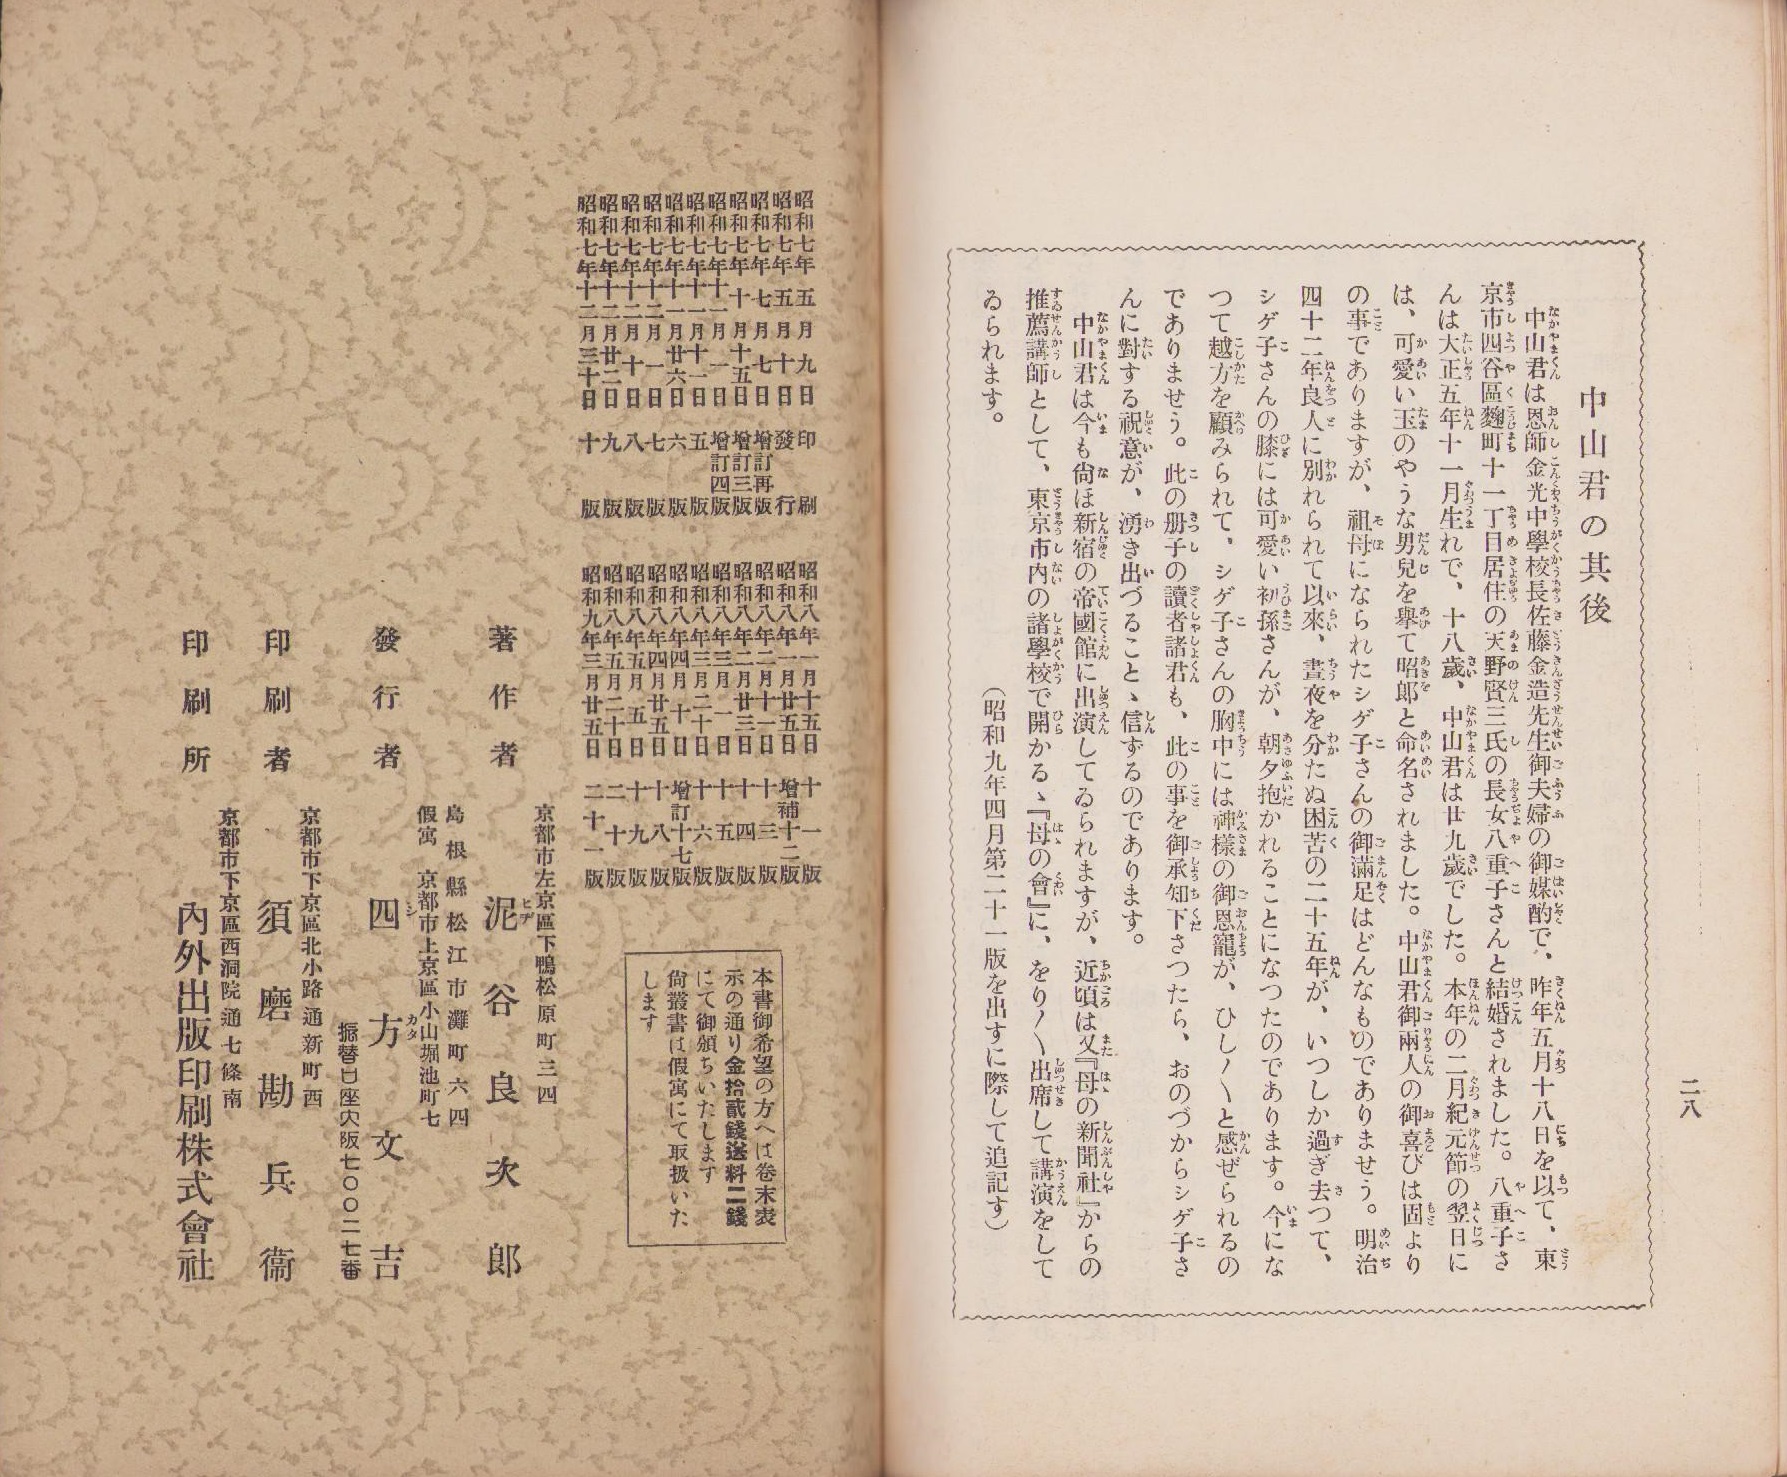 二八
中山君の其後
中山君は恩師金光中學校長佐藤金造先生御夫婦の御媒酌で、昨年五月十八日を以て、東
京市四谷區麴町十一丁目居住の天野賢三氏の長女八重子さんと結婚されました。八重子さ
んは大正五年十一月生れで、十八歲、中山君は廿九歲でした。本年の二月紀元節の翌日に
は、可愛い玉のやうな男兒を擧て昭郎と命名されました。中山君御兩人の御喜びは固より
の事でありますが、祖母になられたシゲ子さんの御滿足はどんなものでありませう。明治
四十二年良人に別れられて以來、晝夜を分たぬ困苦の二十五年が、いつしか過ぎ去つて、
シゲ子さんの膝には可愛い初孫さんが、朝夕抱かれることになつたのであります。今にな
つて越方を顧みられて、シゲ子さんの胸中には神樣の御恩寵が、ひし〱と感ぜられるの
でありませう。此の册子の讀者諸君も、此の事を御承知下さつたら、おのづからシゲ子さ
んに對する祝意が、湧き出づることゝ信ずるのであります。
中山君は今も尙ほ新宿の帝國館に出演してゐられますが、近頃は又『母の新聞社』からの
推薦講師として、東京市內の諸學校で開かるゝ『母の會』に、をり〱出席して講演をして
ゐられます。
（昭和九年四月第二十一版を出すに際して追記す）
昭和七年五月九日印刷
昭和七年五月十日發行
昭和七年七月七日增訂再版
昭和七年十月十五日增訂三版
昭和七年十一月一日增訂四版
昭和七年十一月十一日五版
昭和七年十一月廿六日六版
昭和七年十二月一日七版
昭和七年十二月十日八版
昭和七年十二月廿二日九版
昭和七年十二月三十日十版
昭和八年一月十五日十一版
昭和八年一月廿五日增補十二版
昭和八年二月十一日十三版
昭和八年二月廿三日十四版
昭和八年三月一日十五版
昭和八年三月二十日十六版
昭和八年四月十日增訂十七版
昭和八年四月廿五日十八版
昭和八年五月五日十九版
昭和八年五月二十日二十版
昭和九年三月廿五日二十一版
本書御希望の方へは卷末表
示の通り金拾貳錢送料二錢
にて御頒ちいたします
尙叢書は假寓にて取扱いた
します
京都市左京區下鴨松原町三四
著作者 泥谷良次郎
島根縣松江市灘町六四
假寓 京都市上京區小山堀池町七
發行者 四方文吉
振替口座大阪七〇〇二七番
京都市下京區北小路通新町西
印刷者 須磨勘兵衞
京都市下京區西洞院通七條南
印刷所 內外出版印刷株式會社